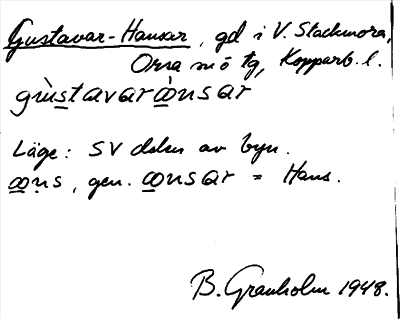 Gustavar-Hansar, gd i V. Stackmora,
Orsa sn ö tg, Kopparb. l.
gùstavarànsar
Läge: SV delen av byn.
ans, gen. ansar = Hans.
B. Granholm 1948.